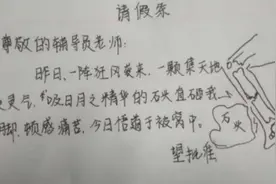 请假条
尊敬的辅导员老师:
昨日,一阵狂风袭来,一颗集天地
之灵气,吸日月之精华的石头直砸我
脚,顿感痛苦,今日悟道于被窝中。
望批准
石头